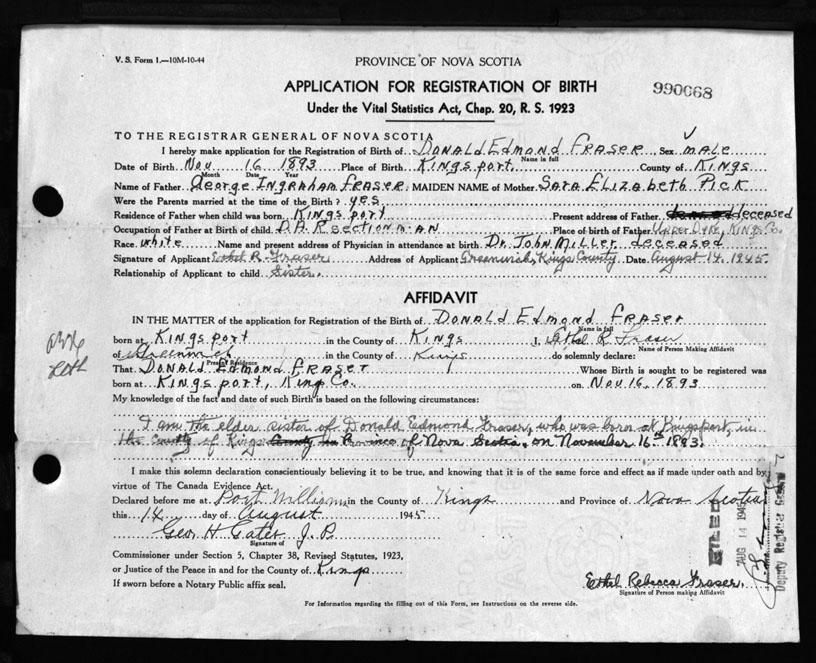 V. S. Form 1.—10M-10-44
PROVINCE OF NOVA SCOTIA
APPLICATION FOR REGISTRATION OF BIRTH
990068
Under the Vital Statistics Act, Chap. 20, R. S. 1923
TO THE REGISTRAR GENERAL OF NOVA SCOTIA
I hereby make application for the Registration of Birth of Donald Edmond Fraser Sex male
Name in full
Date of Birth Nov 16 1893 Place of Birth Kingsport County of Kings
Month Date Year
Name of Father George Ingraham Fraser MAIDEN NAME of Mother Sara Elizabeth Pick
Were the Parents married at the time of the birth? yes
Residence of Father when child was born Kingsport Present address of Father deceased
Occupation of Father at Birth of child D.A.R section man Place of birth of Father Upper Dyke, Kings Co.
Race white Name and present address of Physician in attendance at birth Dr. John Miller deceased
Signature of Applicant Ethel R. Fraser Address of Applicant Greenwich, Kings County Date August 14, 1945
Relationship of Applicant to child Sister.
AFFIDAVIT
IN THE MATTER of the application for Registration of the Birth of Donald Edmond Fraser
Name in full
born at Kingsport in the County of Kings I, Ethel R Fraser
Name of Person Making Affidavit
of Greenwich in the County of Kings do solemnly declare:
Present Residence
That Donald Edmond Fraser Whose Birth is sought to be registered was
born at Kingsport, King Co. on Nov. 16, 1893
My knowledge of the fact and date of such Birth is based on the following circumstances:
I am the elder sister of Donald Edmond Fraser, who was born at Kingsport, in
the County of Kings County in Province of Nova Scotia, on November 16th 1893.
I make this solemn declaration conscientiously believing it to be true, and knowing that it is of the same force and effect as if made under oath and by
virtue of The Canada Evidence Act.
Declared before me at Port Williams in the County of Kings and Province of Nova Scotia
this 14 day of August 1945
Geo. H. Gates J. P.
Signature of
Commissioner under Section 5, Chapter 38, Revised Statutes, 1923,
or Justice of the Peace in and for the County of Kings
If sworn before a Notary Public affix seal.
Ethel Rebecca Fraser
Signature of Person making Affidavit
For Information regarding the filling out of this Form, see Instructions on the reverse side.
FILED
AUG 14 1945
Deputy Registrar General